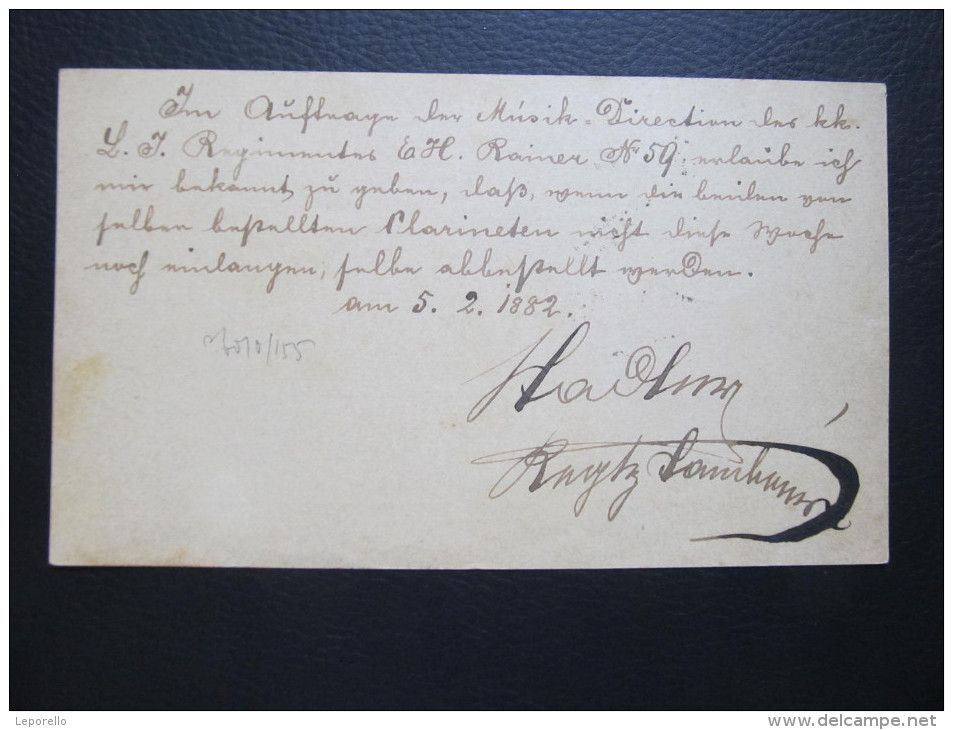 Im Auftrage der Musik-Direction des kk.
L. I. Regimentes EH. Rainer Nr 59. erlaube ich
mir bekannt zu geben, daß, wenn die beiden von
selben bestellten Clarineten nicht diese Woche
noch einlangen, selbe abbestellt werden.
am 5. 2. 1882.
/155
Regtz Tambour
Leporello
www.delcampe.net